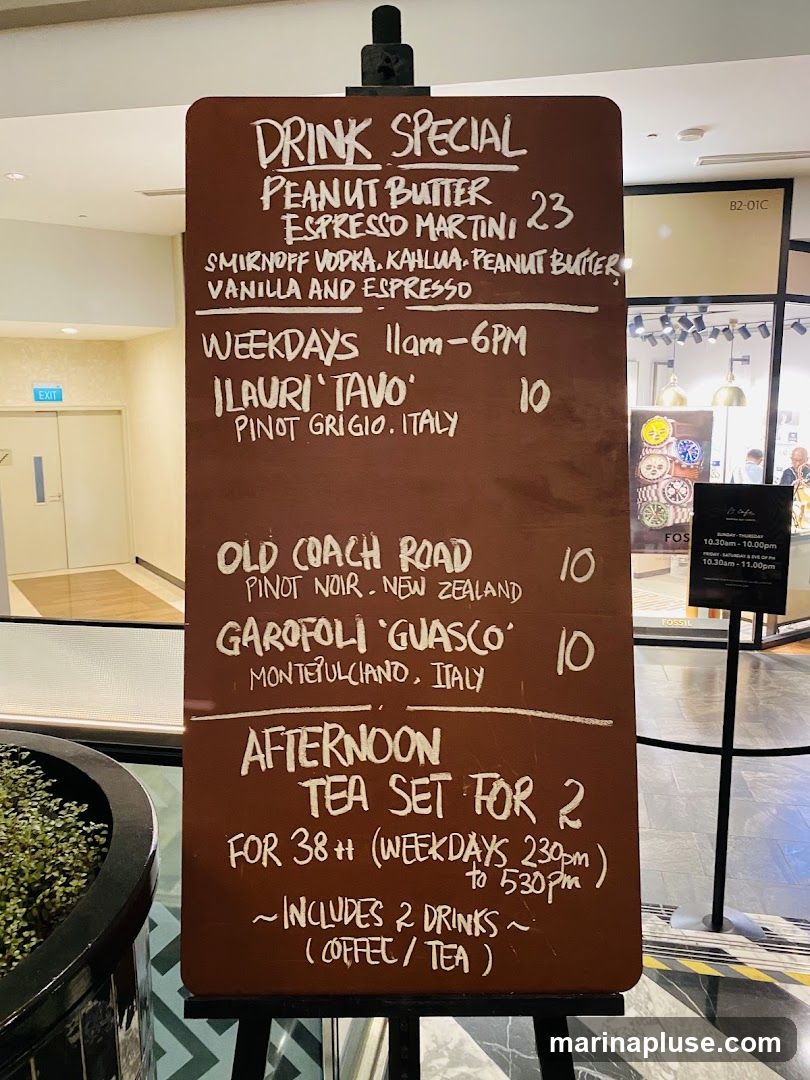 DRINK SPECIAL
PEANUT BUTTER
ESPRESSO MARTINI 23
SMIRNOFF VODKA. KAHLUA. PEANUT BUTTER,
VANILLA AND ESPRESSO
WEEKDAYS 11am - 6PM
ILAURI 'TAVO' 10
PINOT GRIGIO. ITALY
OLD COACH ROAD 10
PINOT NOIR. NEW ZEALAND
GAROFOLI 'GUASCO' 10
MONTEPULCIANO, ITALY
AFTERNOON
TEA SET FOR 2
FOR 38++ (WEEKDAYS 230pm
to 530pm)
~INCLUDES 2 DRINKS~
(COFFEE / TEA)
B2-01C
EXIT
FOSSIL
SUNDAY - THURSDAY
10.30am - 10.00pm
FRIDAY - SATURDAY & EVE OF PH
10.30am - 11.00pm
marinapluse.com